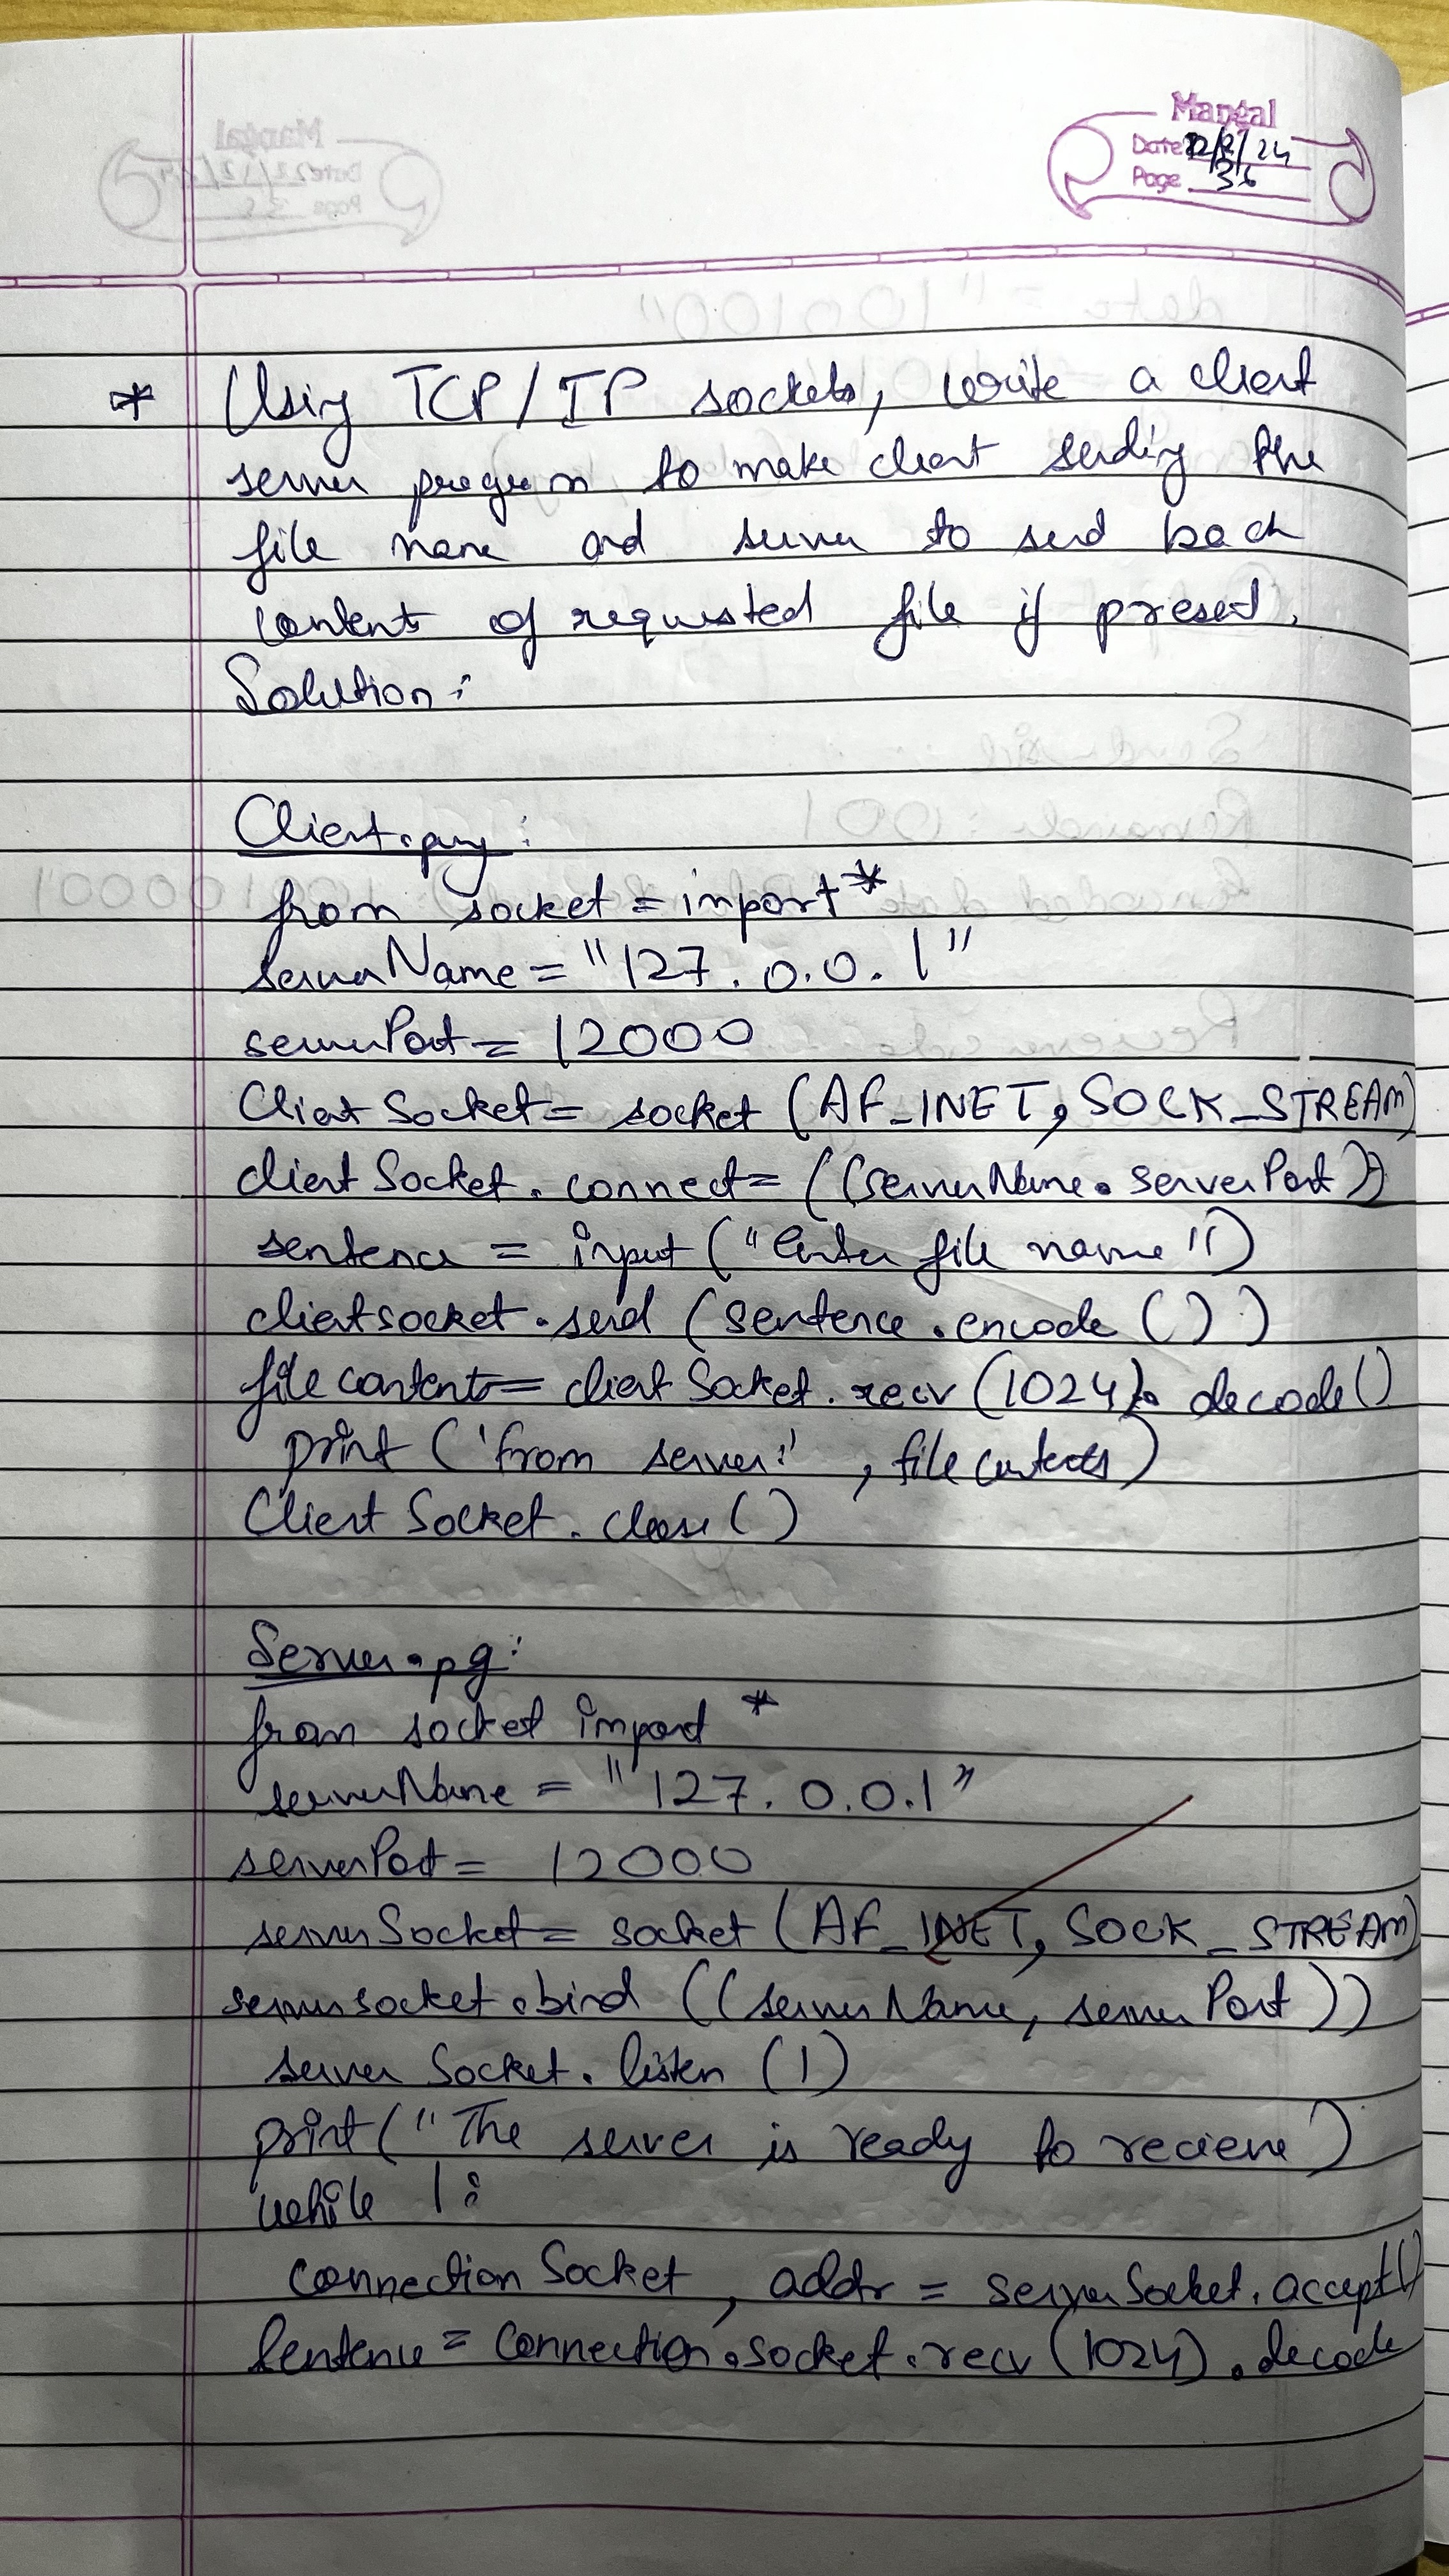 Mangal
Date 22/12/24
Page 36
* Using TCP/IP sockets, write a client
server program to make client sending the
file name and server to send back
contents of requested file if present.
Solution:
Client.py:
from socket = import *
serverName = "127.0.0.1"
serverPort = 12000
Client Socket = socket (AF_INET, SOCK_STREAM)
client Socket. connect = ((serverName. serverPort))
sentence = input ("Enter file name")
clientsocket.send (sentence.encode ())
filecontents = client Socket. recv (1024). decode()
print ('from server:', file contents)
Client Socket. close ()
Server.py:
from socket import *
serverName = "127.0.0.1"
serverPort = 12000
serverSocket = socket (AF_INET, SOCK_STREAM)
serversocket.bind ((serverName, serverPort))
server Socket. listen (1)
print ("The server is ready to recieve)
while 1:
connection Socket, addr = serverSocket. accept()
Sentence = connection.socket.recv (1024).decode